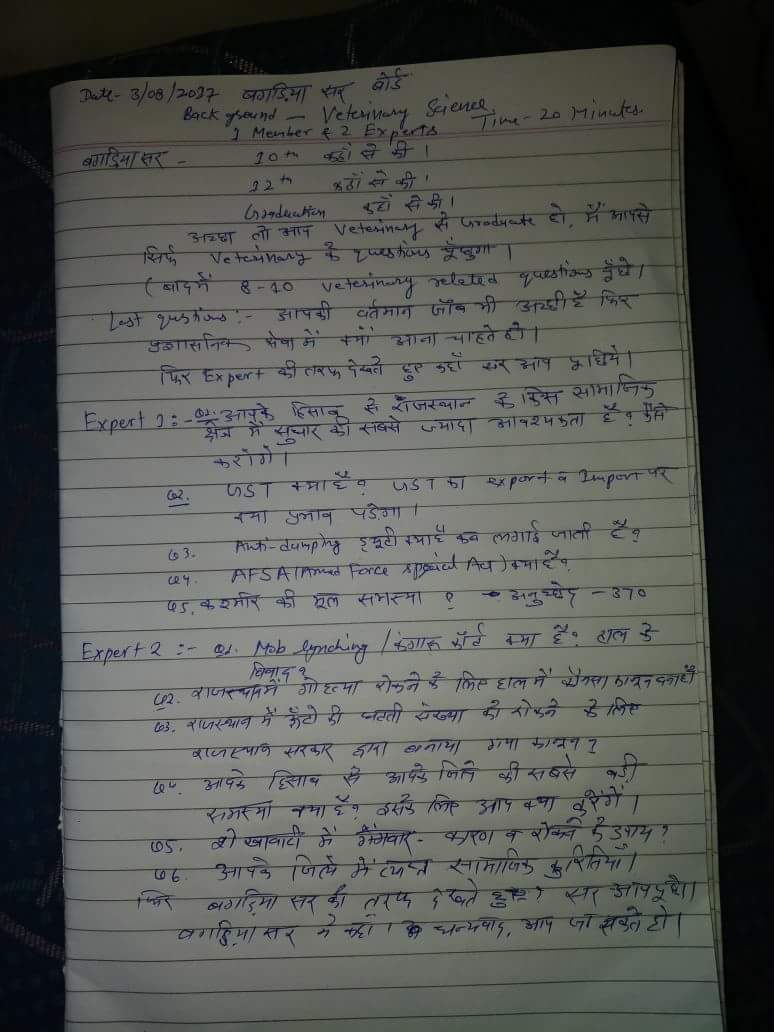 Date- 3/08/2017 बगड़िया सर बोर्ड
Back ground - Veterinary Science Time - 20 Minutes
1 Member & 2 Experts
बगड़िया सर - 10th कहाँ से की।
12th कहाँ से की।
Graduation कहाँ से की।
अच्छा तो आप Veterinary से Graduate हो, मैं आपसे
सिर्फ Veterinary के questions पूँछुगा।
(बाद में 8-10 Veterinary related questions पूँछे।
Last questions:- आपकी वर्तमान जॉब भी अच्छी है फिर
प्रशासनिक सेवा में क्यों आना चाहते हो।
फिर Expert की तरफ देखते हुए कहाँ सर आप पूछिये।
Expert 1:- Q1. आपके हिसाब से राजस्थान के किस सामाजिक
क्षेत्र में सुधार की सबसे ज्यादा आवश्यकता है? कैसे
करोगे।
Q2. GST क्या है? GST का export व Import पर
क्या प्रभाव पड़ेगा।
Q3. Anti-dumping ड्यूटी क्या है कब लगाई जाती है?
Q4. AFSA (Armed Force special Act) क्या है?
Q5. कश्मीर की मूल समस्या? अनुच्छेद - 370
Expert 2:- Q1. Mob lynching / कंगारू कोर्ट क्या है? हाल के
विवाद?
Q2. राजस्थान में गोहत्या रोकने के लिए हाल में कौनसा कानून बना है
Q3. राजस्थान में ऊँटो की घटती संख्या को रोकने के लिए
राजस्थान सरकार द्वारा बनाया गया कानून?
Q4. आपके हिसाब से आपके जिले की सबसे बड़ी
समस्या क्या है? इसके लिए आप क्या करेंगें।
Q5. शेखावाटी में गैंगवार - कारण व रोकने के उपाय?
Q6. आपके जिले में व्याप्त सामाजिक कुरितियाँ।
फिर बगड़िया सर की तरफ देखते हुए? सर आप पूछे।
बगड़िया सर ने कहा। धन्यवाद, आप जा सकते हो।